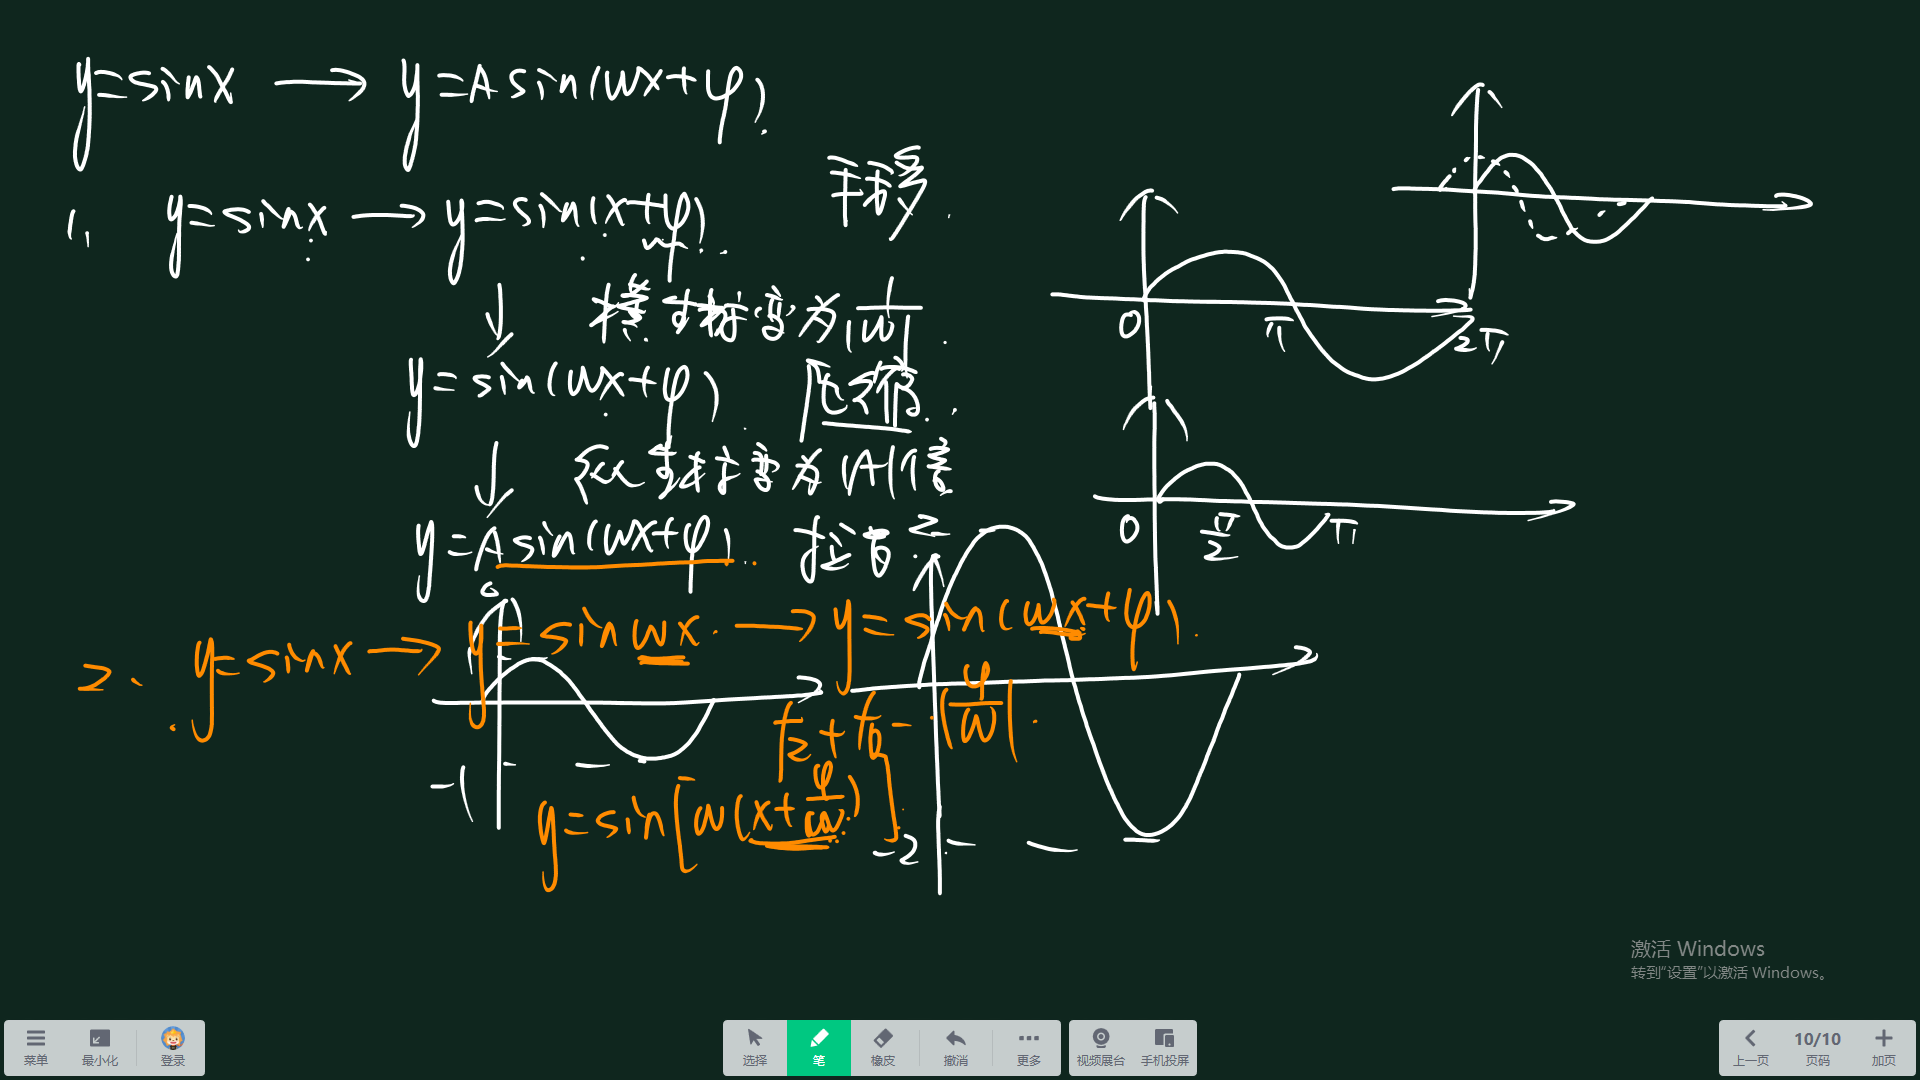 y=sinx → y=Asin(ωx+φ)
1, y=sinx → y=sin(x+φ) 平移
↓ 横坐标变为|1/ω|
y=sin(ωx+φ) 压缩
↓ 纵坐标变为|A|倍
y=Asin(ωx+φ) 拉高
2
0 π 2π
0 π/2 π
2、y=sinx → y=sinωx → y=sin(ωx+φ)
左+右-|φ/ω|
-1
y=sin[ω(x+φ/ω)]
-2
激活 Windows
转到"设置"以激活 Windows。
菜单 最小化 登录 选择 笔 橡皮 撤消 更多 视频展台 手机投屏 上一页 10/10 页码 加页